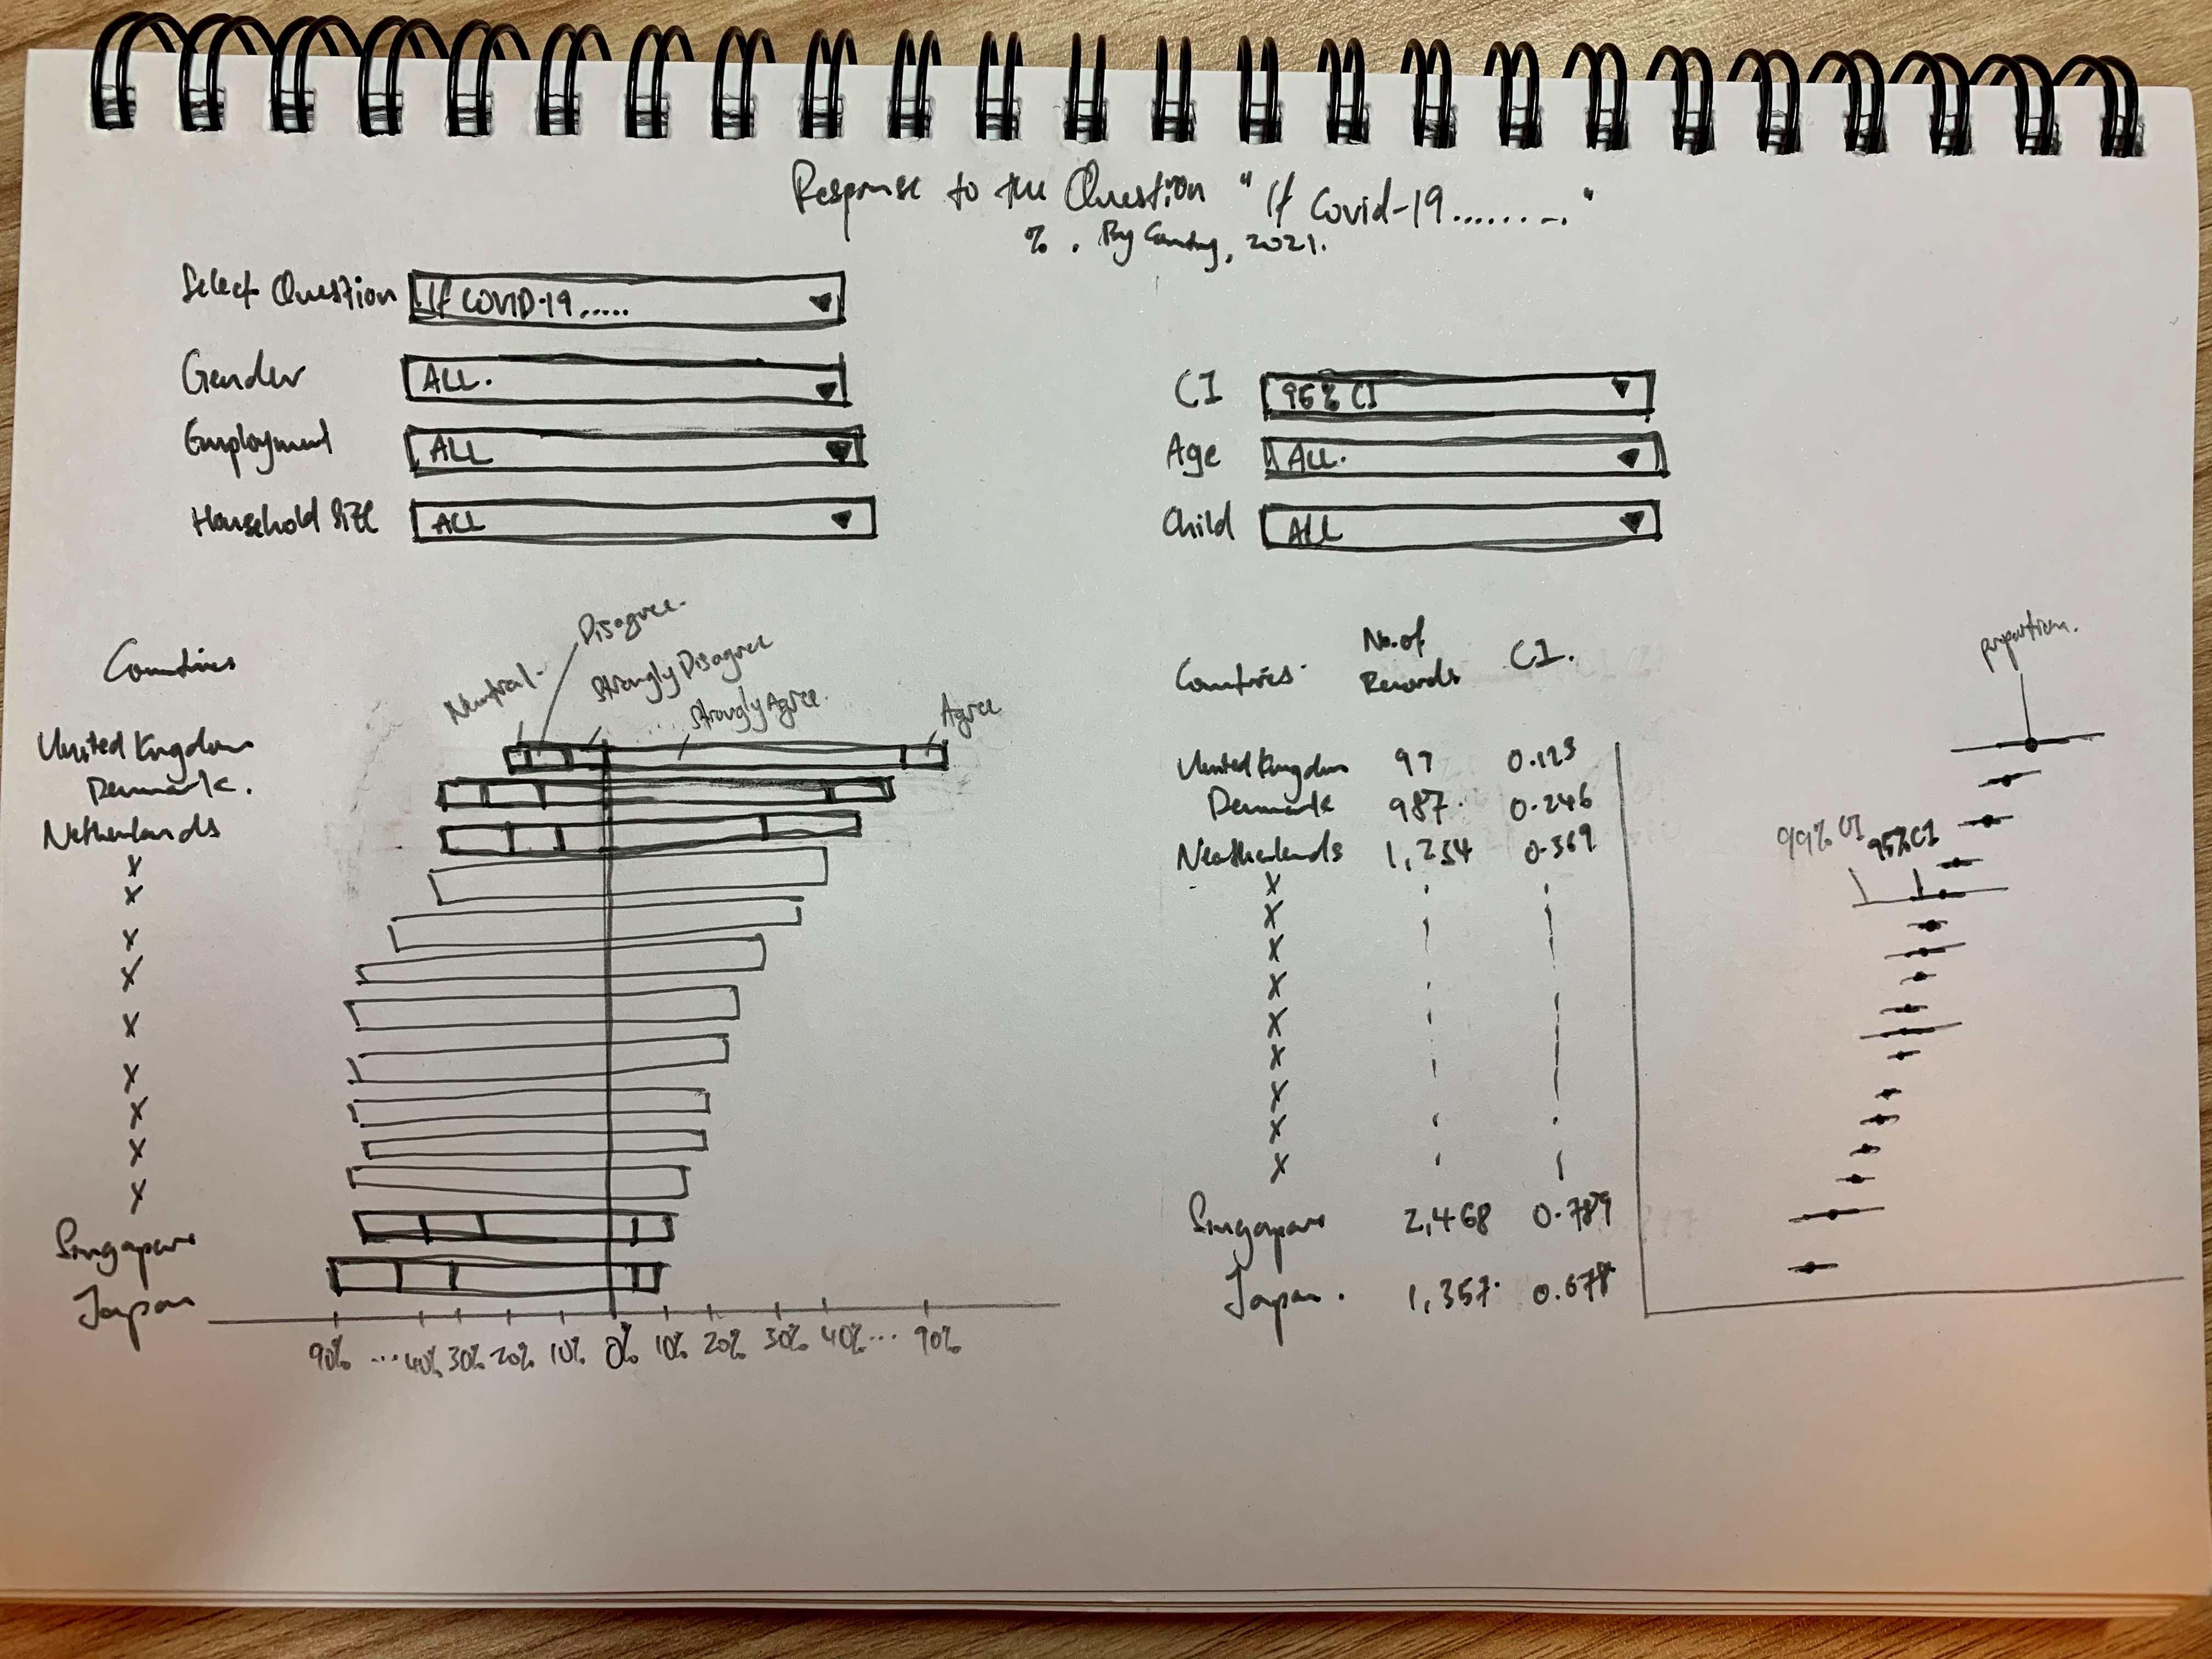 Response to the Question "If Covid-19........"
%. By Country, 2021.
Select Question If COVID-19.....
Gender ALL.
Employment ALL
Household Size ALL
CI 95% CI
Age ALL.
Child ALL
Countries
Neutral.
Disagree.
Strongly Disagree
Strongly Agree.
Agree
United Kingdom
Denmark.
Netherlands
X
X
X
X
X
X
X
X
X
Singapore
Japan
90% ... 40% 30% 20% 10% 0% 10% 20% 30% 40% ... 90%
Countries. No. of Records CI.
United Kingdom 97 0.123
Denmark 987. 0.246
Neatherlands 1,234 0.369
X
X
X
X
X
X
X
X
X
Singapore 2,468 0.789
Japan. 1,357. 0.678
proportion.
99% CI 95% CI